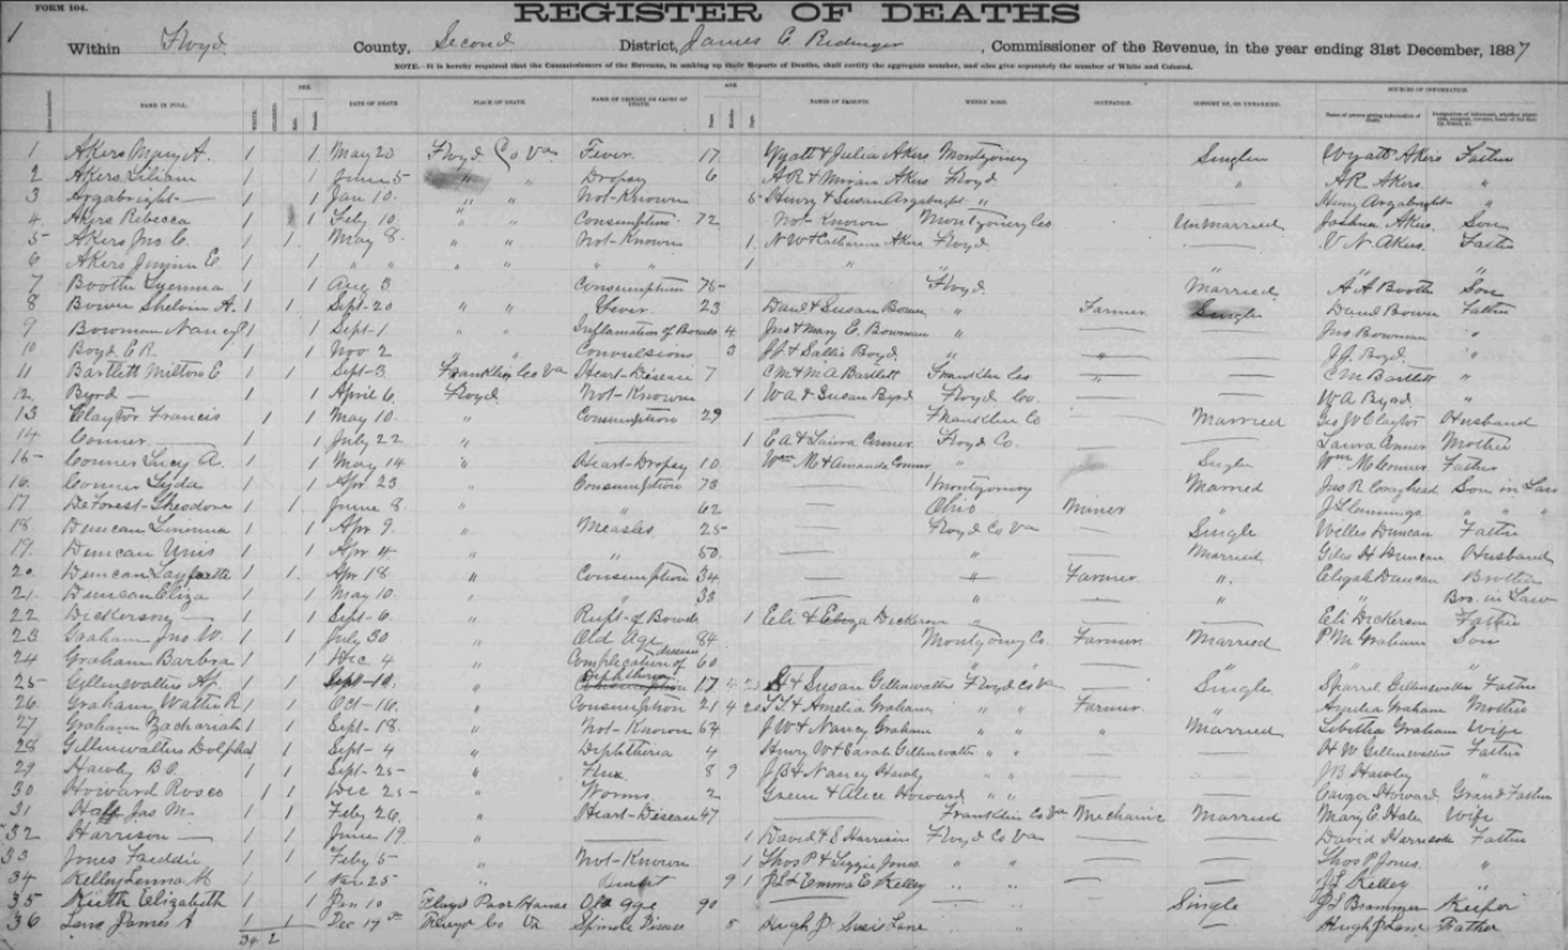 FORM 104.
REGISTER OF DEATHS
1 Within Floyd County, Second District, James C. Ridinger, Commissioner of the Revenue, in the year ending 31st December, 1887
NOTE.—It is hereby required that the Commissioners of the Revenue, in making up their Reports of Deaths, shall certify the aggregate number, and also give separately the number of White and Colored.
NAME IN FULL. WHITE. COLORED. SEX. Male. Female. DATE OF DEATH. PLACE OF DEATH. NAME OF DISEASE OR CAUSE OF DEATH. AGE. Years Months Days NAMES OF PARENTS. WHERE BORN. OCCUPATION. CONSORT OF, OR UNMARRIED. SOURCES OF INFORMATION. Name of person giving information of death.
1 Akers Mary A. 1 1 May 20 Floyd Co Va Fever 17 Wyatt & Julia Akers Montgomery Single Wyatt Akers Father
2 Akers Liliam 1 1 June 5 " " Dropsy 6 A R & Miriam Akers Floyd " A R Akers "
3 Argabright — 1 1 Jan 10 " " Not-Known 5 Henry & Susan Argabright " Henry Argabright "
4 Akers Rebecca 1 1 Feby 10 " " Consumption 72 Not-Known Montgomery Co Unmarried Joshua Akers Son
5 Akers Jno C. 1 1 May 8 " " Not-Known 1 N W & Catharine Akers Floyd — Akers Father
6 Akers E. 1 1 " " " " " " 1 " " " "
7 Booth 1 1 Aug 3 Consumption 75 — Floyd Married A A Booth Son
8 Bower A. 1 1 Sept-20 " " Fever 23 David & Susan Bower " Farmer Single David Bower Father
9 Bowman Nancy 1 1 Sept-1 " " Inflamation of Bowels 4 Jno & Mary E. Bowman " — — Jno Bowman "
10 Boyd E R 1 1 Nov 2 " Convulsions 3 J J & Sallie Boyd " " — J J Boyd "
11 Bartlett Milton E 1 1 Sept-3 Franklin Co Va Heart-Disease 7 C M & M A Bartlett Franklin Co " — C M Bartlett "
12 Byrd — 1 1 April 6 Floyd Not-Known 1 W A & Susan Byrd Floyd Co — — W A Byrd "
13 Claytor Francis 1 1 May 10 " Consumption 29 — Franklin Co Married Geo W Claytor Husband
14 Conner — 1 1 July 22 " — 1 E A & Laura Conner Floyd Co. — Laura Conner Mother
15 Conner Lucy A. 1 1 May 14 " Heart-Dropsy 10 Wm M & Amanda Conner " Single Wm M Conner Father
16 Conner Lyda 1 1 Apr 23 Consumption 73 — Montgomery Married Jno R Son in Law
17 DeForest-Theodore 1 1 June 8 " " 62 — Ohio Miner " J L " " "
18 Duncan 1 1 Apr 9 " Measles 25 — Floyd Co Va Single Duncan Father
19 Duncan Unis 1 1 Apr 14 " " 50 — " — Married Giles H Duncan Husband
20 Duncan Layfaette 1 1 Apr 18 " Consumption 34 — " Farmer " Elijah Duncan Brother
21 Duncan Eliza 1 1 May 10 " " 33 — " — " " Bro. in Law
22 Dickerson — 1 1 Sept-6 " Rupt-of Bowels 1 Eli & Dickerson " — — Eli Dickerson Father
23 Graham Jno W. 1 1 July 30 " Old Age 84 Montgomery Co. Farmer Married P M Graham Son
24 Graham Barbra 1 1 Dec 4 " Complecation of diseases 60 — " " — " " "
25 Gillenwaters 1 1 Sept-10 " Diphtheria 17 4 & Susan Gillenwaters Floyd Co Va — Single Sparrel Gillenwaters Father
26 Graham Walter R. 1 1 Oct-16 " Consumption 21 4 & Amelia Graham " " Farmer " Amelia Graham Mother
27 Graham Zachariah 1 1 Sept-18 " Not-Known 64 J W & Nancy Graham " " " Married Graham Wife
28 Gillenwalters 1 1 Sept-4 " Diphtheria 4 Henry W & Sarah Gillenwalters " " — — H W Gillenwaters Father
29 Hawly B O. 1 1 Sept-25 " Flux 8 9 J B & Nancy Hawly " " — — J B Hawley "
30 Howard Rosco 1 1 Dec 25 " Worms 2 Green & Alice Howard " " — — Howard Grand Father
31 Jas M. 1 1 Feby 26 " Heart-Disease 47 — Franklin Co Va Mechanic Married Mary E Wife
32 Harrison — 1 1 June 19 " — 1 David & S Harrison Floyd Co Va — — David Harrison Father
33 Jones Freddie 1 1 Feby 5 " Not-Known 1 Thos P & Lizzie Jones " " — — Thos P Jones "
34 Kelley M 1 1 25 " 9 1 J L & Emma E Kelley " " — — J L Kelley "
35 Keith Elizabeth 1 1 Jan 10 Floyd Poor House Old age 90 — " Single Brammer Keeper
36 Lane James A 1 1 Dec 17th Floyd Co Va Spinole Disease 5 Hugh J. Susie Lane " — Hugh J Lane Father
34 2